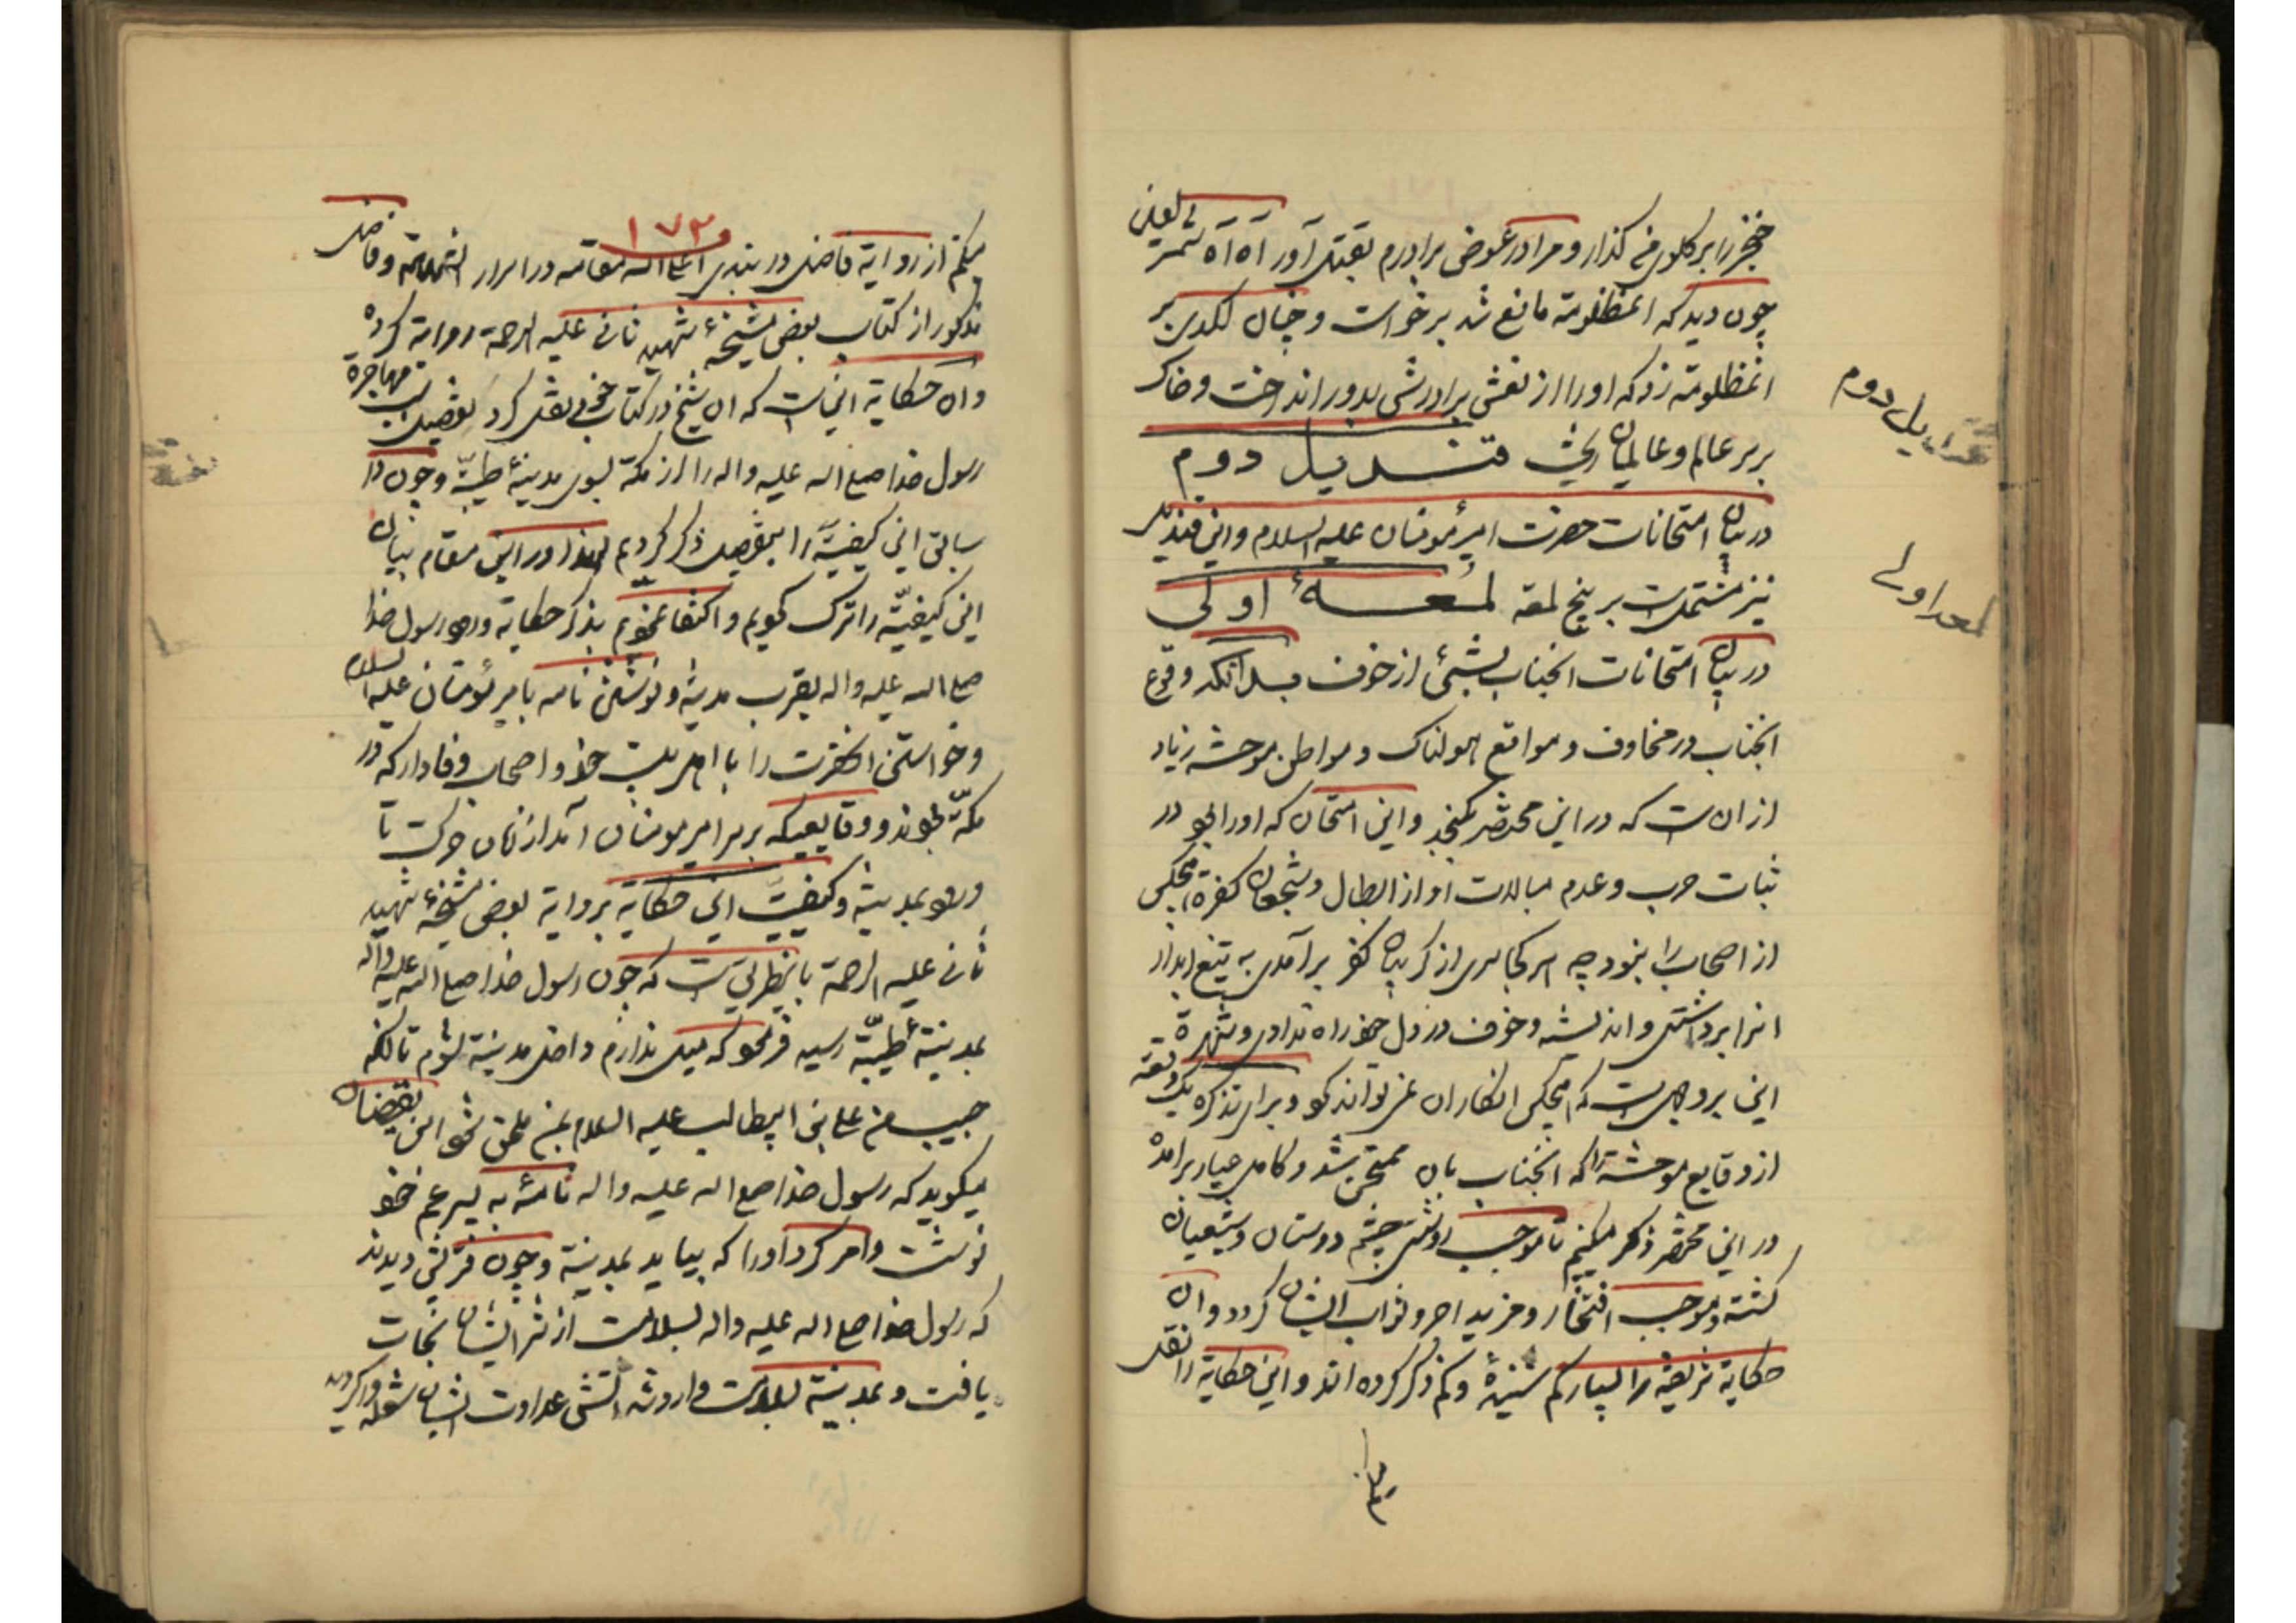 خنجر را بر گلوی من گذار و مرا در عوض برادرم بقتل آور آه آه شمر لعین
چون دید که انمظلومه مانع شد برخواست و چنان لکدی بر
انمظلومه زد که او را از نعش برادرش بدور انداخت و خاک
بر سر عالم و عالمیان ریخت قندیل دوم
در بیان امتحانات حضرت امیرمؤمنان علیه السلام و این قندیل
نیز مشتملست بر پنج لمعه لمعهٔ اولی
در بیان امتحانات انجناب بشیئی از خوف بدانکه وقوع
انجناب در مخاوف و مواقع هولناک و مواطن موحشه زیاد
از انست که در این مختصر بکنجد و این امتحان که او را بود در
ثبات حرب و عدم مبالات او از ابطال و شجعان کفره هیچکس
از اصحاب را نبود چه هر کجا سری از کریبان کفر برآمدی به تیغ ابدار
انرا برداشتی و اندیشه و خوف در دل خود راه ندادی و شهرة
این بر وجهیست که هیچکس انکار ان نمیتواند کرد و برای تذکره یک وقعه
از وقایع موحشه را که انجناب بان ممتحن شد و کامل عیار برآمده
در این مختصر ذکر میکنیم تا موجب روشنی چشم دوستان و شیعیان
کشته و موجب افتخار و مزید اجر و ثواب ایشان کردد و ان
حکایة شریفه را بسیار کم شنیده و کم ذکر کرده اند و این حکایة را نقل
میکنم
قندیل دوم
لمعه اولی
۱۷۳
میکنم از روایة فاضل دربندی اعلی اله مقامه در اسرار الشهادة و فاضل
مذکور از کتاب بعض مشیخهٔ شهید ثانی علیه الرحمة روایة کرده
و ان حکایة اینست که ان شیخ در کتاب خود نقل کرد بتفصیل سبب مهاجرة
رسول خدا صلی اله علیه واله را از مکه بسوی مدینهٔ طیبه و چون در
سابق این کیفیة را بتفصیل ذکر کردیم لهذا در این مقام بیان
این کیفیة را ترک کویم و اکتفا نمودیم بذکر حکایة ورود رسول خدا
صلی اله علیه واله بقرب مدینه و نوشتن نامه بامیرمؤمنان علیه السلام
و خواستن انحضرت را با اهل بیت خود و اصحاب وفادار که در
مکه بودند و وقایعیکه بر سر امیرمومنان آمد از زمان حرکت تا
ورود بمدینه و کیفیت این حکایة بروایة بعض مشیخهٔ شهید
ثانی علیه الرحمة باینطریقست که چون رسول خدا صلی اله علیه واله
بمدینهٔ طیبه رسید فرمود که میل ندارم داخل مدینه شوم تا انکه
حبیب من علی بن ابیطالب علیه السلام بمن ملحق شود ابن یقضان
میکوید که رسول خدا صلی اله علیه واله نامهٔ به پسر عم خود
نوشت و امر کرد او را که بیاید بمدینه و چون قریش دیدند
که رسول خدا صلی اله علیه واله بسلامت از شر ایشان نجات
یافت و بمدینه بسلامت وارد شد اتش عداوت ایشان شعله ور کردید